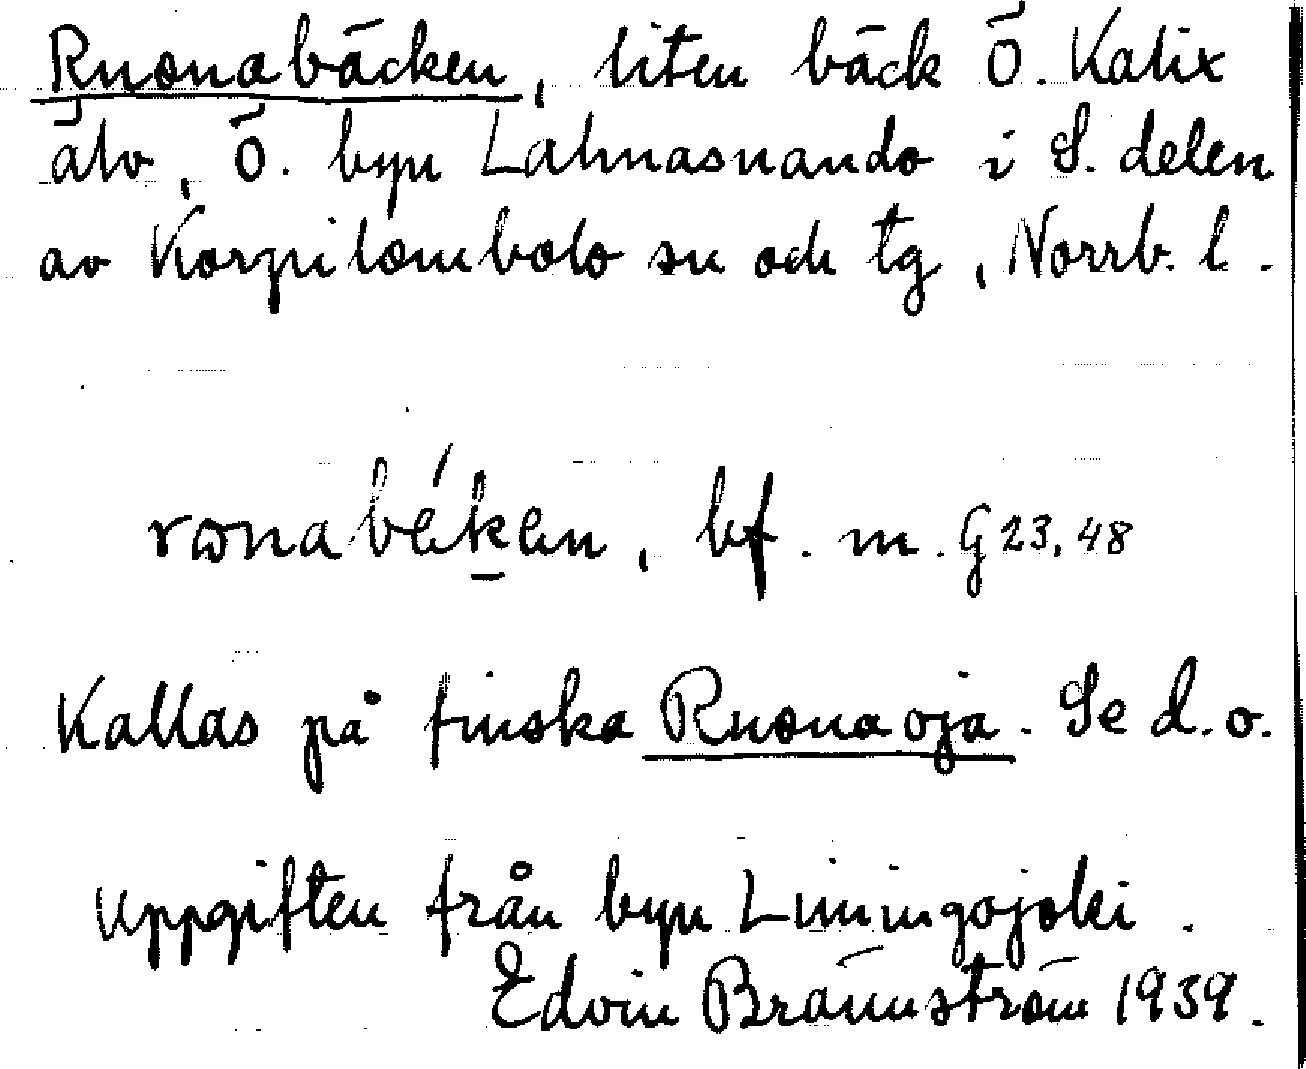 Ruonabäcken, liten bäck Ö. Kalix
älv, Ö. byn Lahnasuando i S. delen
av Korpilombolo sn och tg, Norrb. l.
bf. m. G 23, 48
Kallas på finska Ruonaoja. Se d. o.
Uppgiften från byn Liviningojoki.
Edvin Brännström 1939.